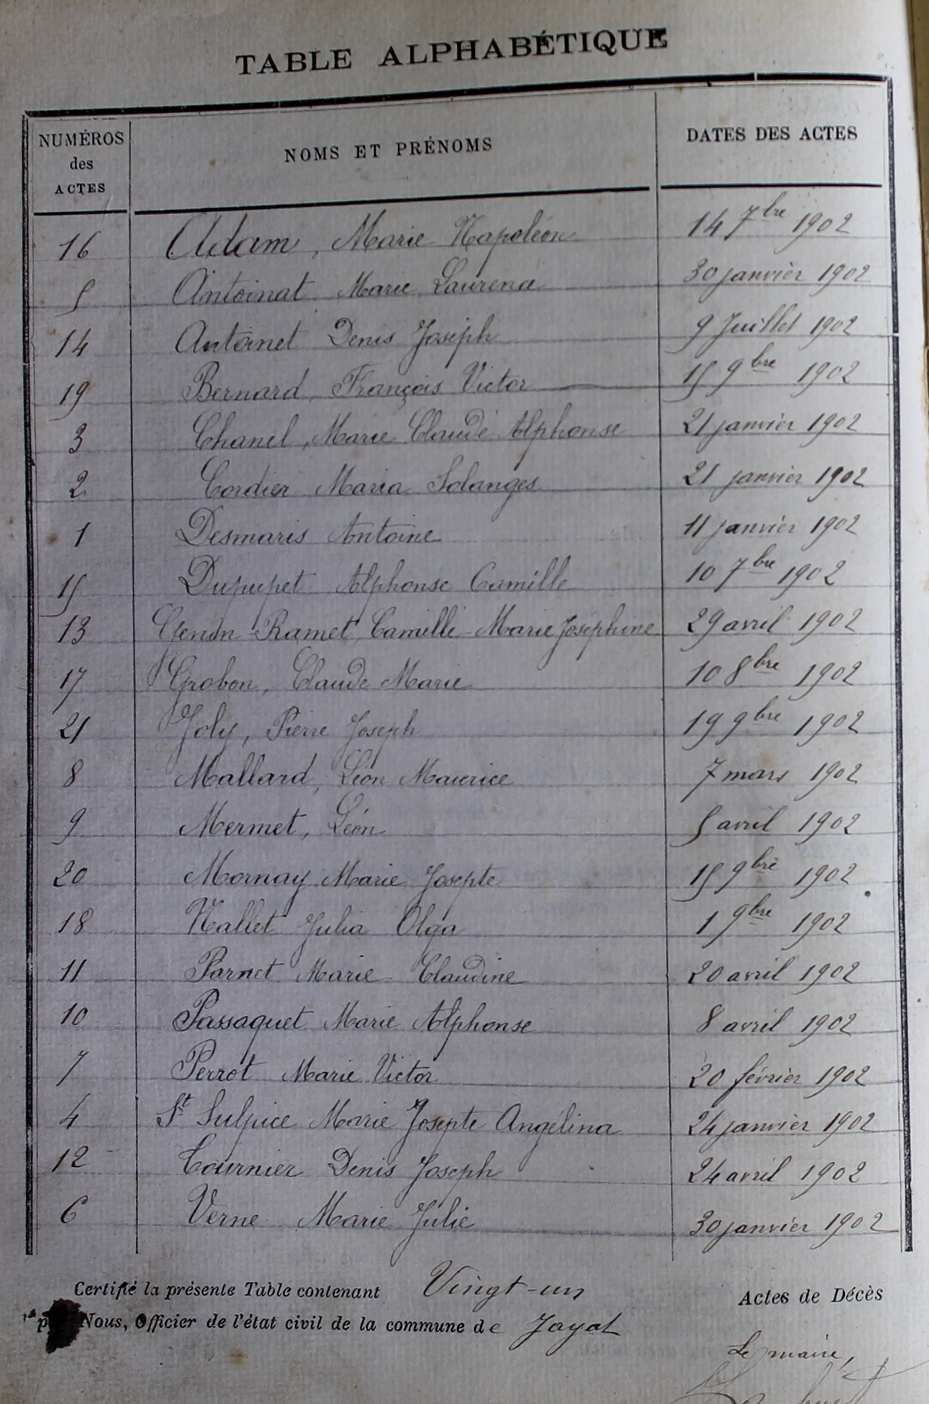 TABLE ALPHABÉTIQUE
NUMÉROS des ACTES NOMS ET PRÉNOMS DATES DES ACTES
16 Adam, Marie Napoléon 14 7bre 1902
5 Antoinat Marie Laurence 30 janvier 1902
14 Antoinet Denis Joseph 9 Juillet 1902
19 Bernard, François Victor 15 9bre 1902
3 Chanel, Marie Claude Alphonse 21 janvier 1902
2 Cordier Maria Solanges 21 janvier 1902
1 Desmaris Antoine 11 janvier 1902
15 Dupupet Alphonse Camille 10 7bre 1902
13 Genin-Ramet Camille Marie Josephine 29 avril 1902
17 Grobon, Claude Marie 10 8bre 1902
21 Joly, Pierre Joseph 19 9bre 1902
8 Mallard, Léon Maurice 7 mars 1902
9 Mermet, Léon 5 avril 1902
20 Mornay Marie Josepte 15 9bre 1902
18 Nallet Julia Olga 1 9bre 1902
11 Parnet Marie Claudine 20 avril 1902
10 Passaquet Marie Alphonse 8 avril 1902
7 Perrot Marie Victor 20 février 1902
4 St Sulpice Marie Josepte Angélina 24 janvier 1902
12 Tournier Denis Joseph 24 avril 1902
6 Verne Marie Julie 30 janvier 1902
Certifié la présente Table contenant Vingt-un Actes de Décès
Nous, Officier de l'état civil de la commune de Jayat
Le maire,